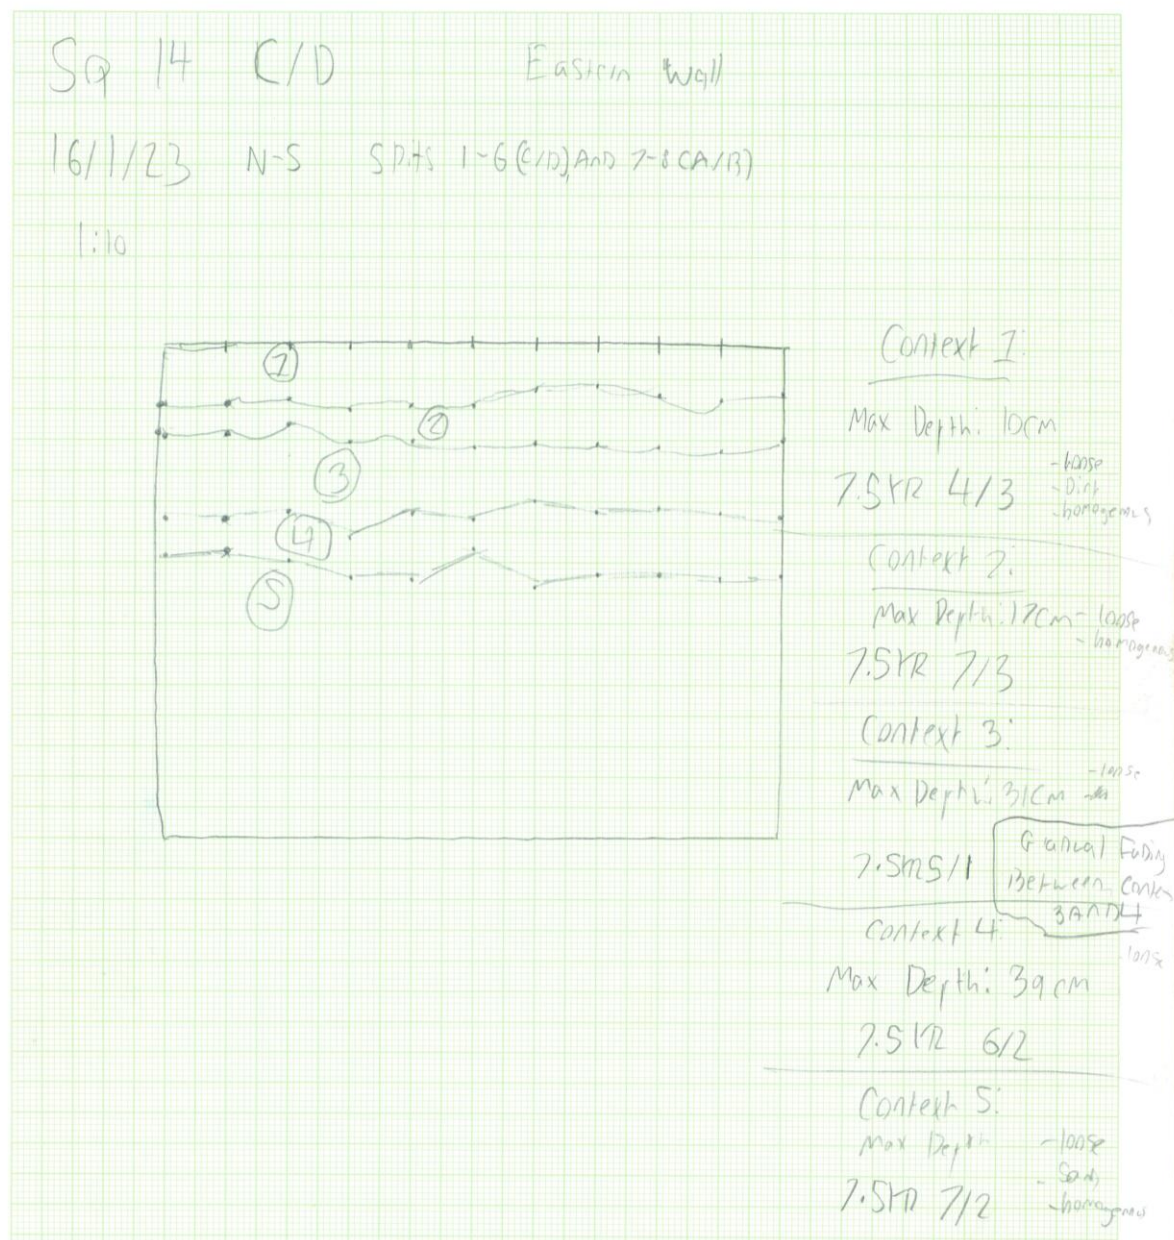 Sq 14 C/D Eastern Wall
16/1/23 N-S Spits 1-6 (C/D) AND 7-8 (A/B)
1:10
1
2
3
4
5
Context 1:
Max Depth: 10cm
7.5YR 4/3
- loose
- Dirt
- homogenus
Context 2:
Max Depth: 17cm - loose
- homogenous
7.5YR 7/3
Context 3:
Max Depth: 31cm
- loose
7.5YR 5/1
Gradual Fading
Between Contex
3 AND 4
Context 4:
- loose
Max Depth: 39cm
7.5YR 6/2
Context 5:
Max Depth - loose
- homogenous
7.5YR 7/2